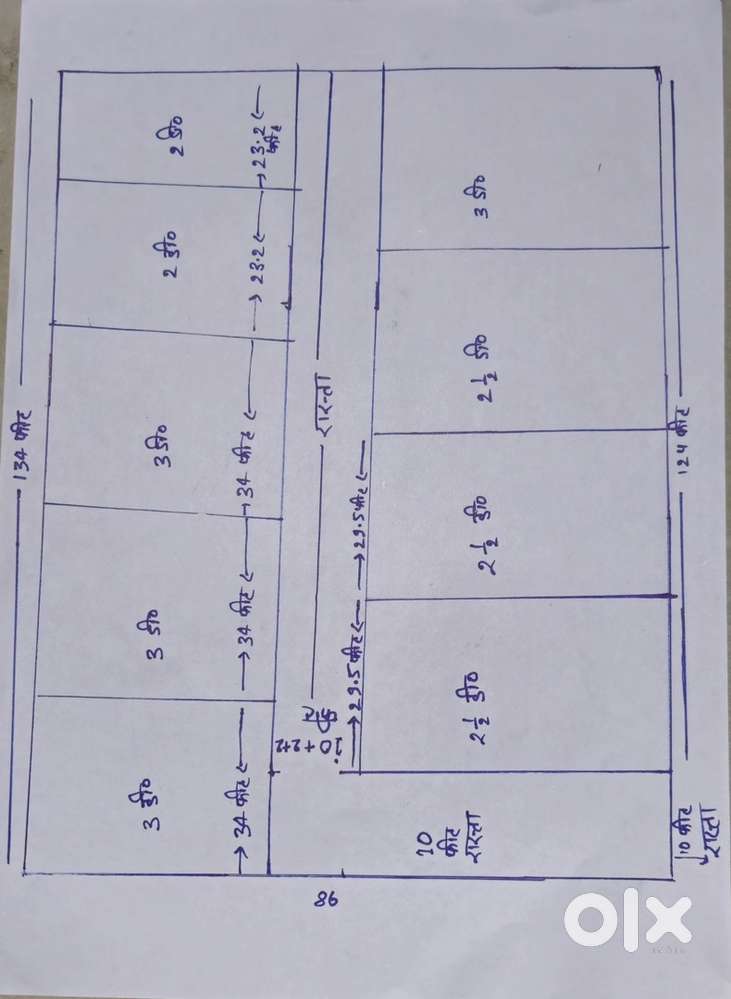 2 डी०
→ 23.2 ←
फीट
2 डी०
→ 23.2 ←
3 डी०
→ 34 फीट ←
3 डी०
→ 34 फीट ←
3 डी०
→ 34 फीट ←
134 फीट
रास्ता
10+2+2
3 डी०
2 1/2 डी०
2 1/2 डी०
→ 29.5 फीट ←
2 1/2 डी०
→ 29.5 फीट ←
124 फीट
10
फीट
रास्ता
10 फीट
रास्ता
86
olx